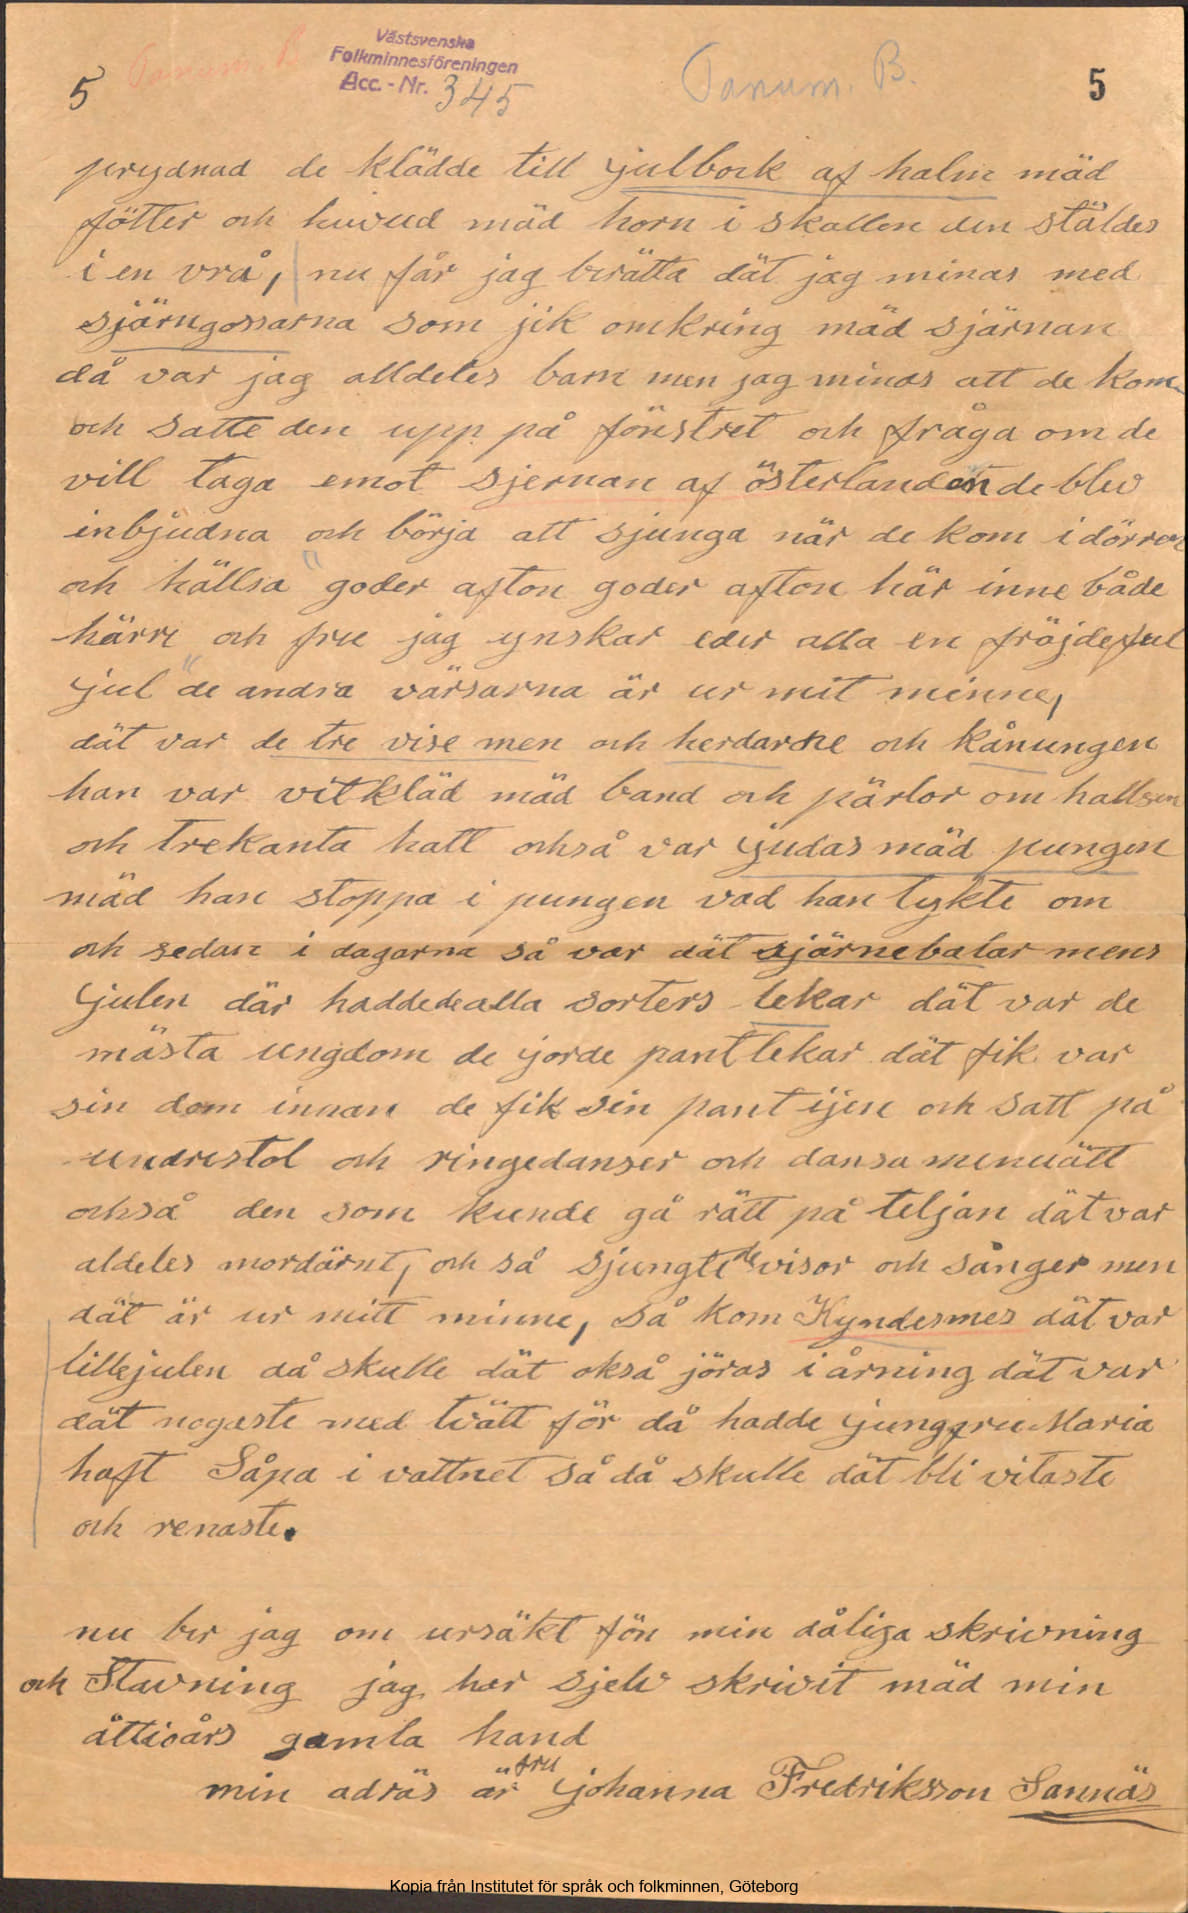 5 Tanum. B Västsvenska
Folkminnesföreningen
Acc. - Nr. 345
Tanum. B.
5
prydnad de klädde till julbock af halm mäd
fötter och huvud mäd horn i skallen den stäldes
i en vrå, nu får jag berätta dät jag minas med
sjärngossarna som jik omkring mäd sjärnan
då var jag alldeles barn men jag minas att de kom
och satte den upp på fönstret och fråga om de
vill taga emot sjernan af österlanden de blev
inbjudna och börja att sjunga när de kom i dörren
och hällsa "goder afton goder afton här inne både
härre och fru jag ynskar eder alla en fröjdeful
jul" de andra värsarna är ur mit minne,
dät var de tre vise men och herdarne och kånungen
han var vitkläd mäd band och pärlor om hallsen
och trekanta hatt också var judas mäd pungen
mäd han stoppa i pungen vad han tykte om
och sedan i dagarna så var dät sjärnebalar mens
julen där hadde de alla sorters lekar dät var de
mästa ungdom de jorde pantlekar dät fik var
sin dom innan de fik sin pant ijen och satt på
undrestol och ringedanser och dansa menuätt
också den som kunde gå rätt på teljan dät var
aldeles mordärnt, och så sjungte de visor och sånger men
dät är ur mitt minne, så kom Kyndesmes dät var
lillejulen då skulle dät okså jöras i årning dät var
dät nogaste med tvätt för då hadde jungfru Maria
haft Såpa i vattnet så då skulle dät bli vitaste
och renaste.
nu ber jag om ursäkt för min dåliga skrivning
och Stavning jag har sjelv skrivit mäd min
åttioårs gamla hand
min adräs är fru johanna Fredriksson Sannäs
Kopia från Institutet för språk och folkminnen, Göteborg